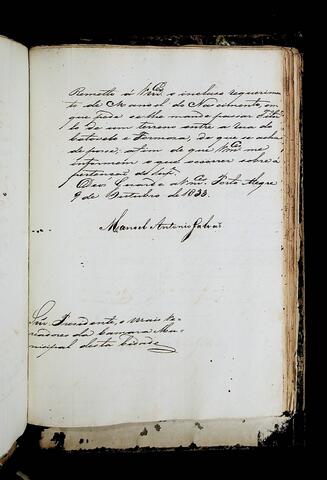 Remetto á V.mces o incluso requerimen-
to de Manoel do Nascimento, em
que pede se lhe mande passar Titu-
lo de um terreno entre a rua do
e Formoza, de que se acha
de posse; afim de que V.mces me
informem o que ocorrer sobre a
pertenção do Sup.e
Deos Guarde a V.mces Porto Alegre
9 de Outubro de 1833.
Manoel Antonio Galvão
Snr. Presidente, e mais Ve-
readores da Camara Mu-
nicipal desta Cidade